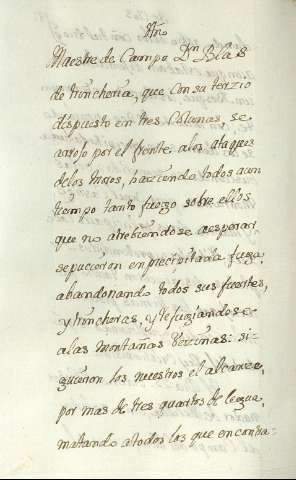 ñro
Maestre de Campo Dn Blas
de trincheria, que con su terzio
dispuesto en tres Colunas, se
arrojo por el frente, alos ataques
delos moros, haziendo todos aun
tiempo tanto fuego sobre ellos
que no atrebiendose aesperar,
sepucieron en precipitada fuga,
abandonando todos sus fuertes,
y trincheras, y refugiandose
alas montañas Vezinas: si-
guieron los nuestros el alcanze,
por mas de tres quartos de legua,
matando atodos los que encontra-